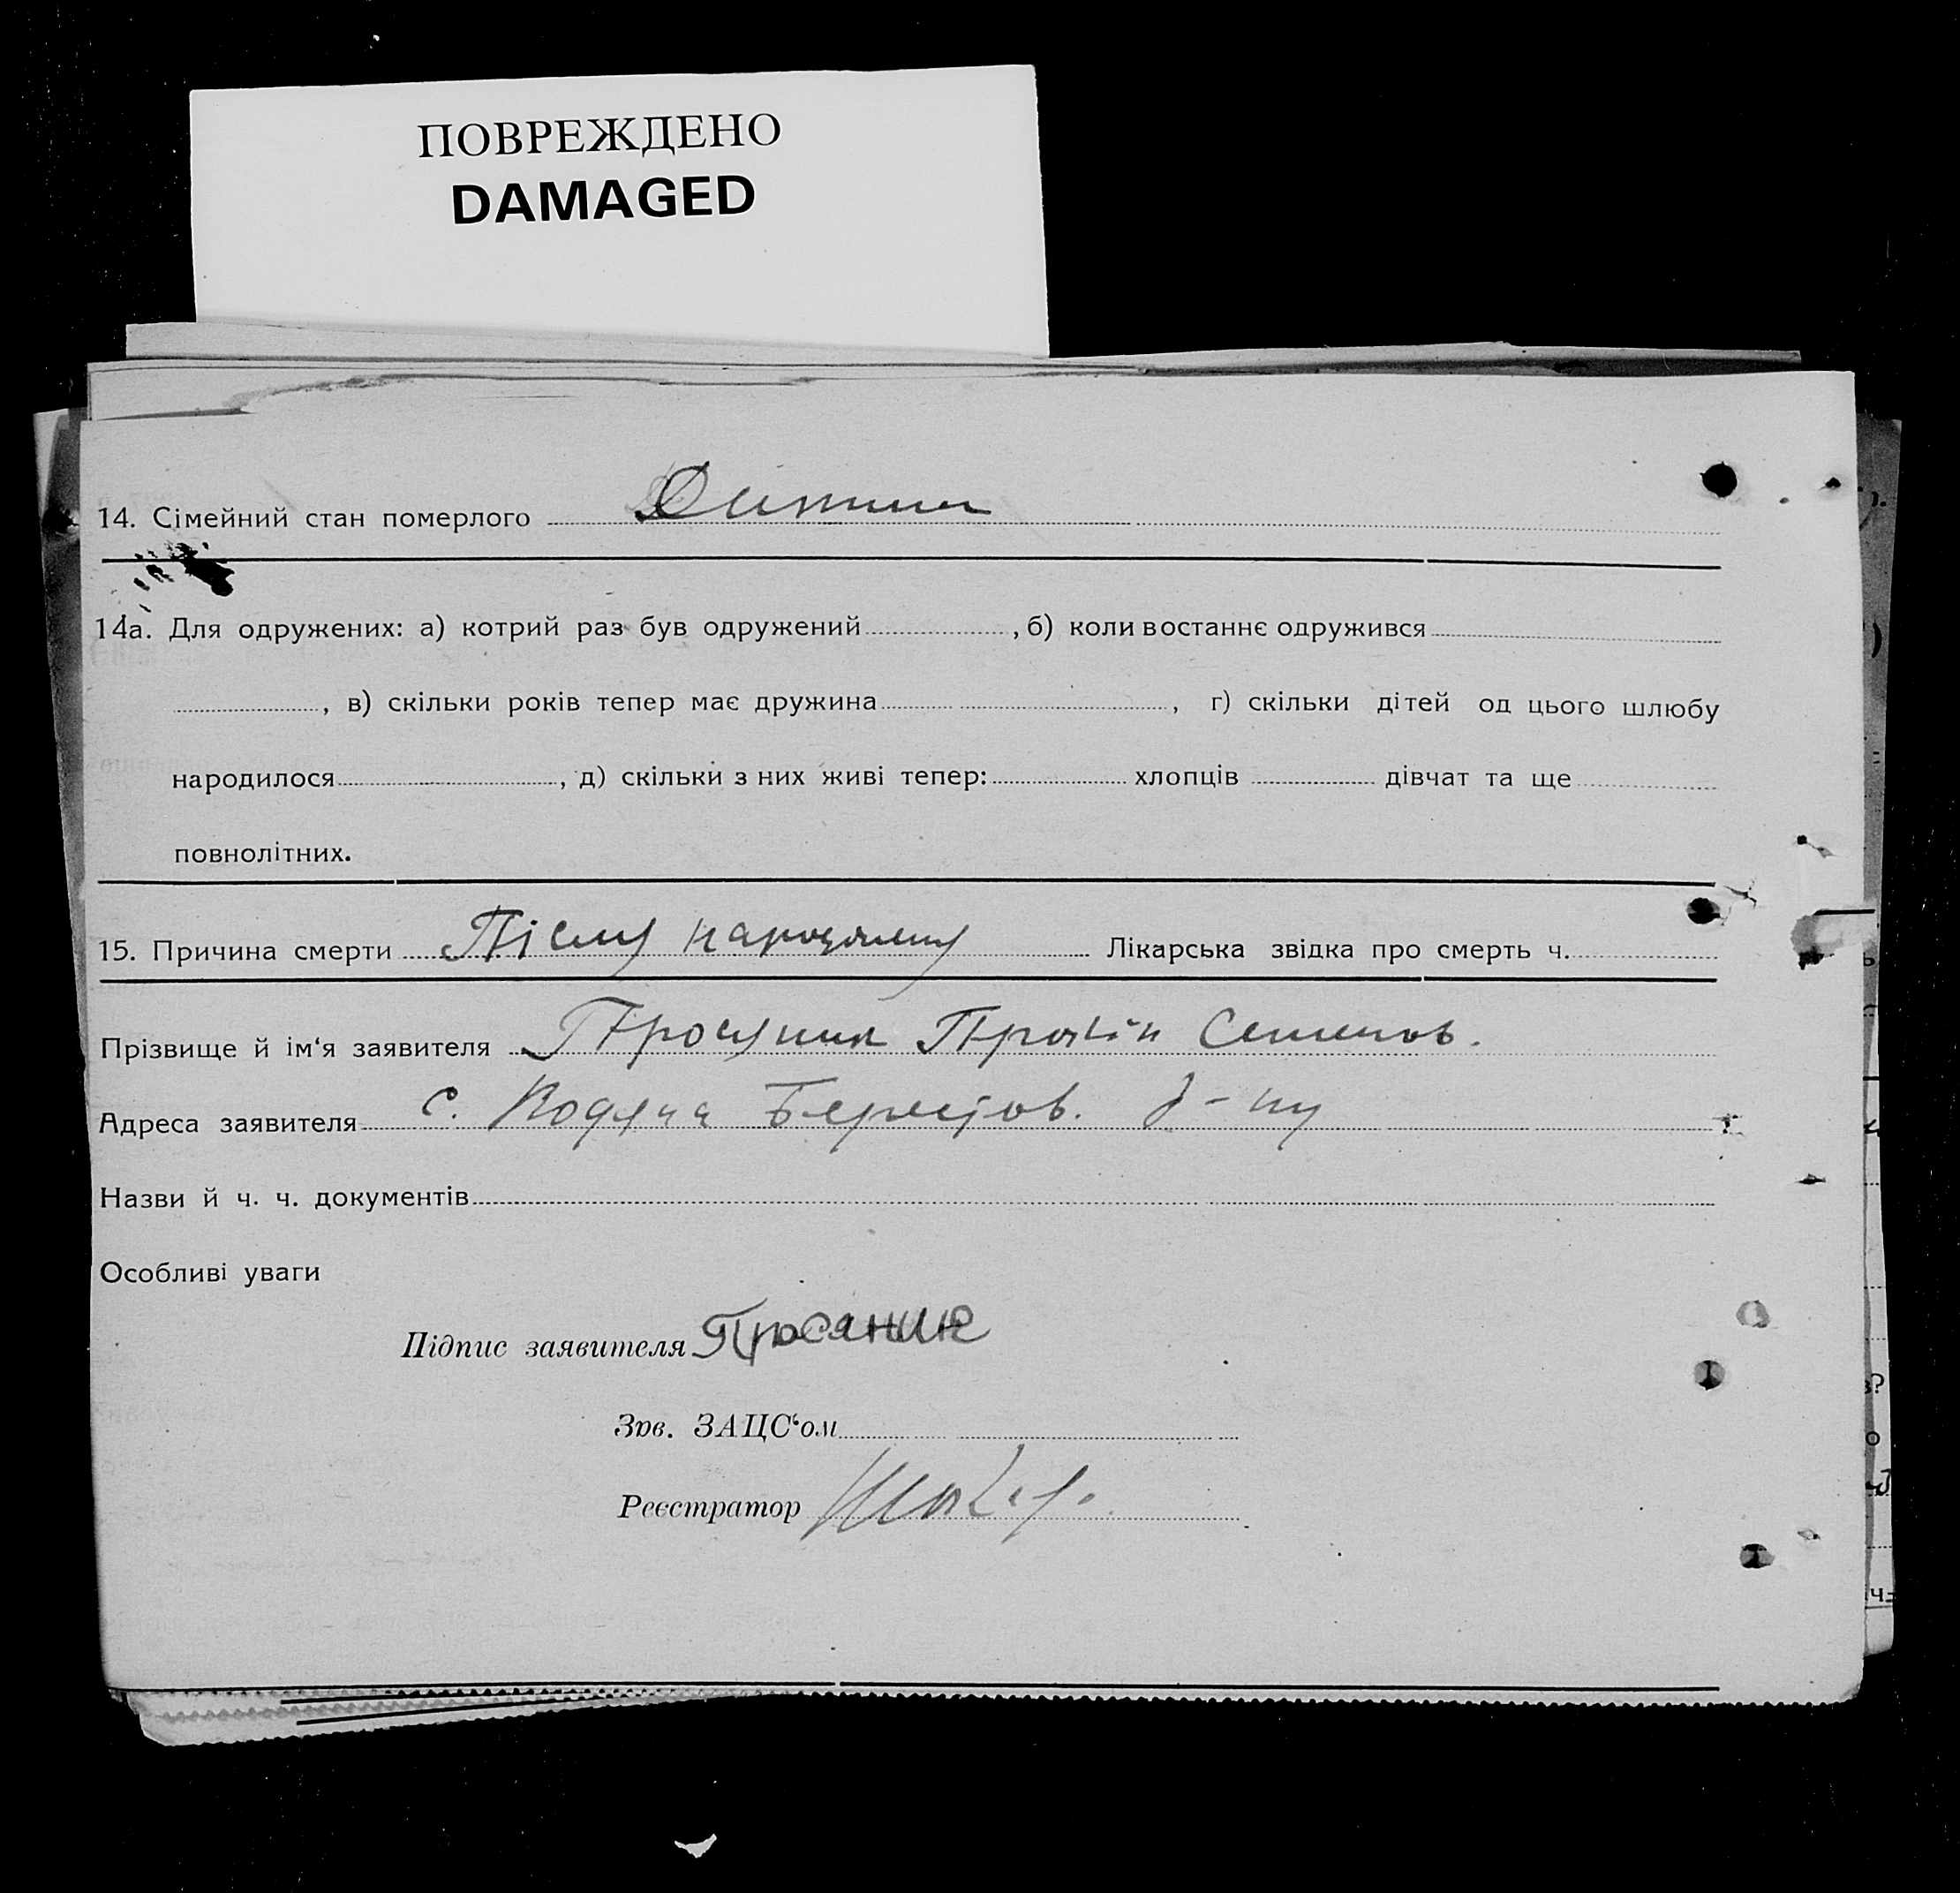 ПОВРЕЖДЕНО
DAMAGED
14. Сімейний стан померлого Дитина
14а. Для одружених: а) котрий раз був одружений , б) коли востаннє одружився
, в) скільки років тепер має дружина , г) скільки дітей од цього шлюбу
народилося , д) скільки з них живі тепер: хлопців дівчат та ще
повнолітних.
15. Причина смерти Після Лікарська звідка про смерть ч.
Прізвище й ім‘я заявителя Просяник Семенов.
Адреса заявителя с. Водяна р-ну
Назви й ч. ч. документів
Особливі уваги
Підпис заявителя Просяник
Зав. ЗАЦС‘ом
Реєстратор